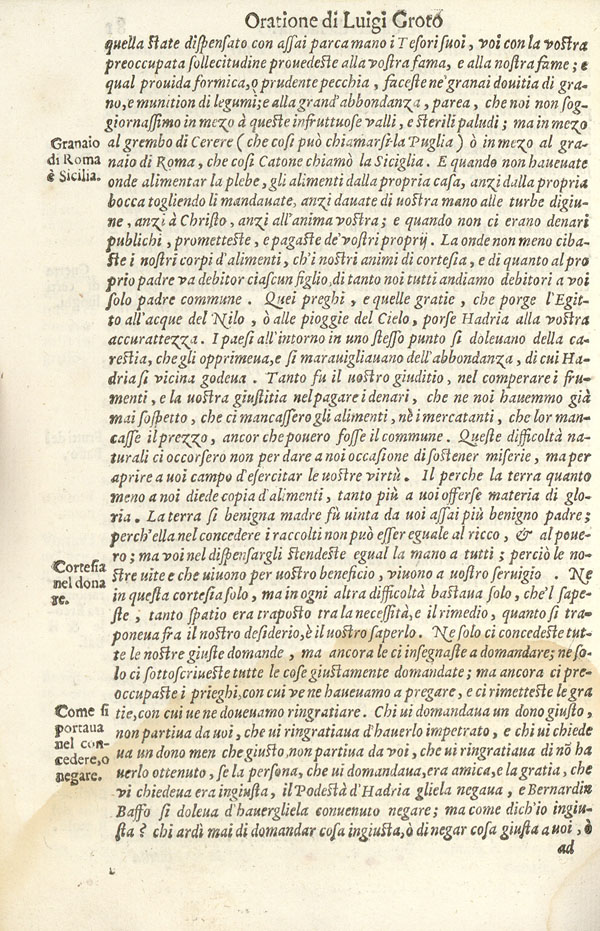 Oratione di Luigi Groto
quella ſtate diſpenſato con aſſai parca mano i Teſori ſuoi, voi con la voſtra
preoccupata ſollecitudine prouedeſte alla voſtra fama, e alla noſtra fame; e
qual prouida formica, o prudente pecchia, faceſte ne' granai douitia di gra-
no, e munition di legumi; e alla grand' abbondanza, parea, che noi non ſog-
giornaſſimo in mezo à queſte infruttuose valli, e ſterili paludi; ma in mezo
Granaio
di Roma
è Sicilia.
al grembo di Cerere ( che coſi può chiamarſi la Puglia ) ò in mezo al gra-
naio di Roma, che coſi Catone chiamò la Siciglia. E quando non haueuate
onde alimentar la plebe, gli alimenti dalla propria caſa, anzi dalla propria
bocca togliendo li mandauate, anzi dauate di uoſtra mano alle turbe digiu-
ne, anzi à Chriſto, anzi all'anima voſtra; e quando non ci erano denari
publichi, prometteſte, e pagaſte de' voſtri proprij. La onde non meno ciba-
ſte i noſtri corpi d'alimenti, ch'i noſtri animi di corteſia, e di quanto al pro
prio padre va debitor ciaſcun figlio, di tanto noi tutti andiamo debitori a voi
ſolo padre commune. Quei preghi, e quelle gratie, che porge l'Egit-
to all'acque del Nilo, ò alle pioggie del Cielo, porſe Hadria alla voſtra
accurattezza. I paeſi all'intorno in uno ſteſſo punto ſi doleuano della ca-
reſtia, che gli opprimeua, e ſi marauigliauano dell'abbondanza, di cui Ha-
dria ſi vicina godeua. Tanto fu il uoſtro giuditio, nel comperare i fru-
menti, e la voſtra giuſtitia nel pagare i denari, che ne noi hauemmo già
mai ſoſpetto, che ci mancaſſero gli alimenti, nè i mercatanti, che lor man-
caſſe il prezzo, ancor che pouero foſſe il commune. Queſte difficoltà na-
turali ci occorſero non per dare a noi occaſione di ſoſtener miſerie, ma per
aprire a uoi campo d'eſercitar le uoſtre virtù. Il perche la terra quanto
meno a noi diede copia d'alimenti, tanto più a uoi offerſe materia di glo-
ria. La terra ſi benigna madre fù uinta da uoi aſſai più benigno padre;
perch'ella nel concedere i raccolti non può eſſer eguale al ricco, & al poue-
Corteſia
nel dona
re.
ro; ma voi nel diſpenſargli ſtendeſte egual la mano a tutti; perciò le no-
ſtre uite e che uiuono per uoſtro beneficio, viuono a uoſtro ſeruigio. Ne
in queſta corteſia ſolo, ma in ogni altra difficoltà baſtaua ſolo, che'l ſape-
ſte, tanto ſpatio era trapoſto tra la neceſſità, e il rimedio, quanto ſi tra-
poneua fra il noſtro deſiderio, è il uoſtro ſaperlo. Ne ſolo ci concedeſte tut-
te le noſtre giuſte domande, ma ancora le ci inſegnaſte a domandare; ne ſo-
lo ci ſottoſcriueſte tutte le coſe giuſtamente domandate; ma ancora ci pre-
occupaſte i prieghi, con cui ve ne haueuamo a pregare, e ci rimetteſte le gra
Come ſi
portaua
nel con-
cedere, o
negare.
tie, con cui ue ne doueuamo ringratiare. Chi ui domandaua un dono giuſto,
non partiua da uoi, che ui ringratiaua d'hauerlo impetrato, e chi ui chiede
ua un dono men che giuſto, non partiua da voi, che ui ringratiaua di nõ ha
uerlo ottenuto, ſe la perſona, che ui domandaua, era amica, e la gratia, che
vi chiedeua era ingiuſta, il Podeſtà d'Hadria gliela negaua, e Bernardin
Baffo ſi doleua d'hauergliela conuenuto negare; ma come dich'io ingiu-
ſta? chi ardì mai di domandar coſa ingiuſta, ò di negar coſa giuſta a uoi, ò
ad